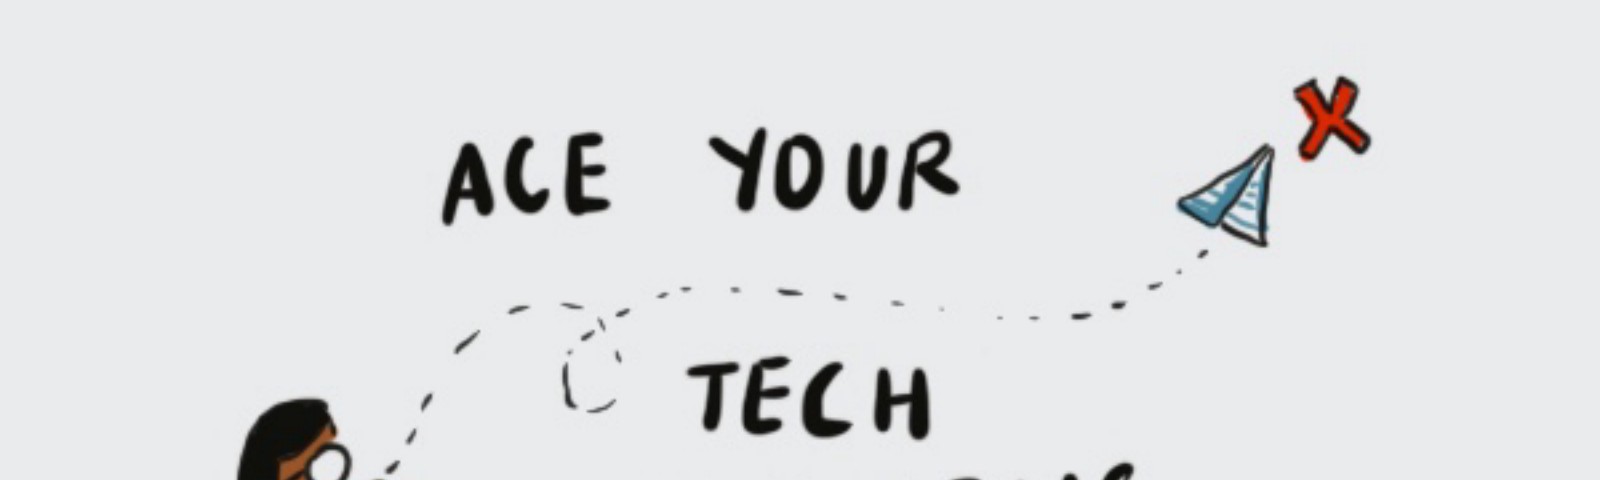 ACE YOUR
TECH